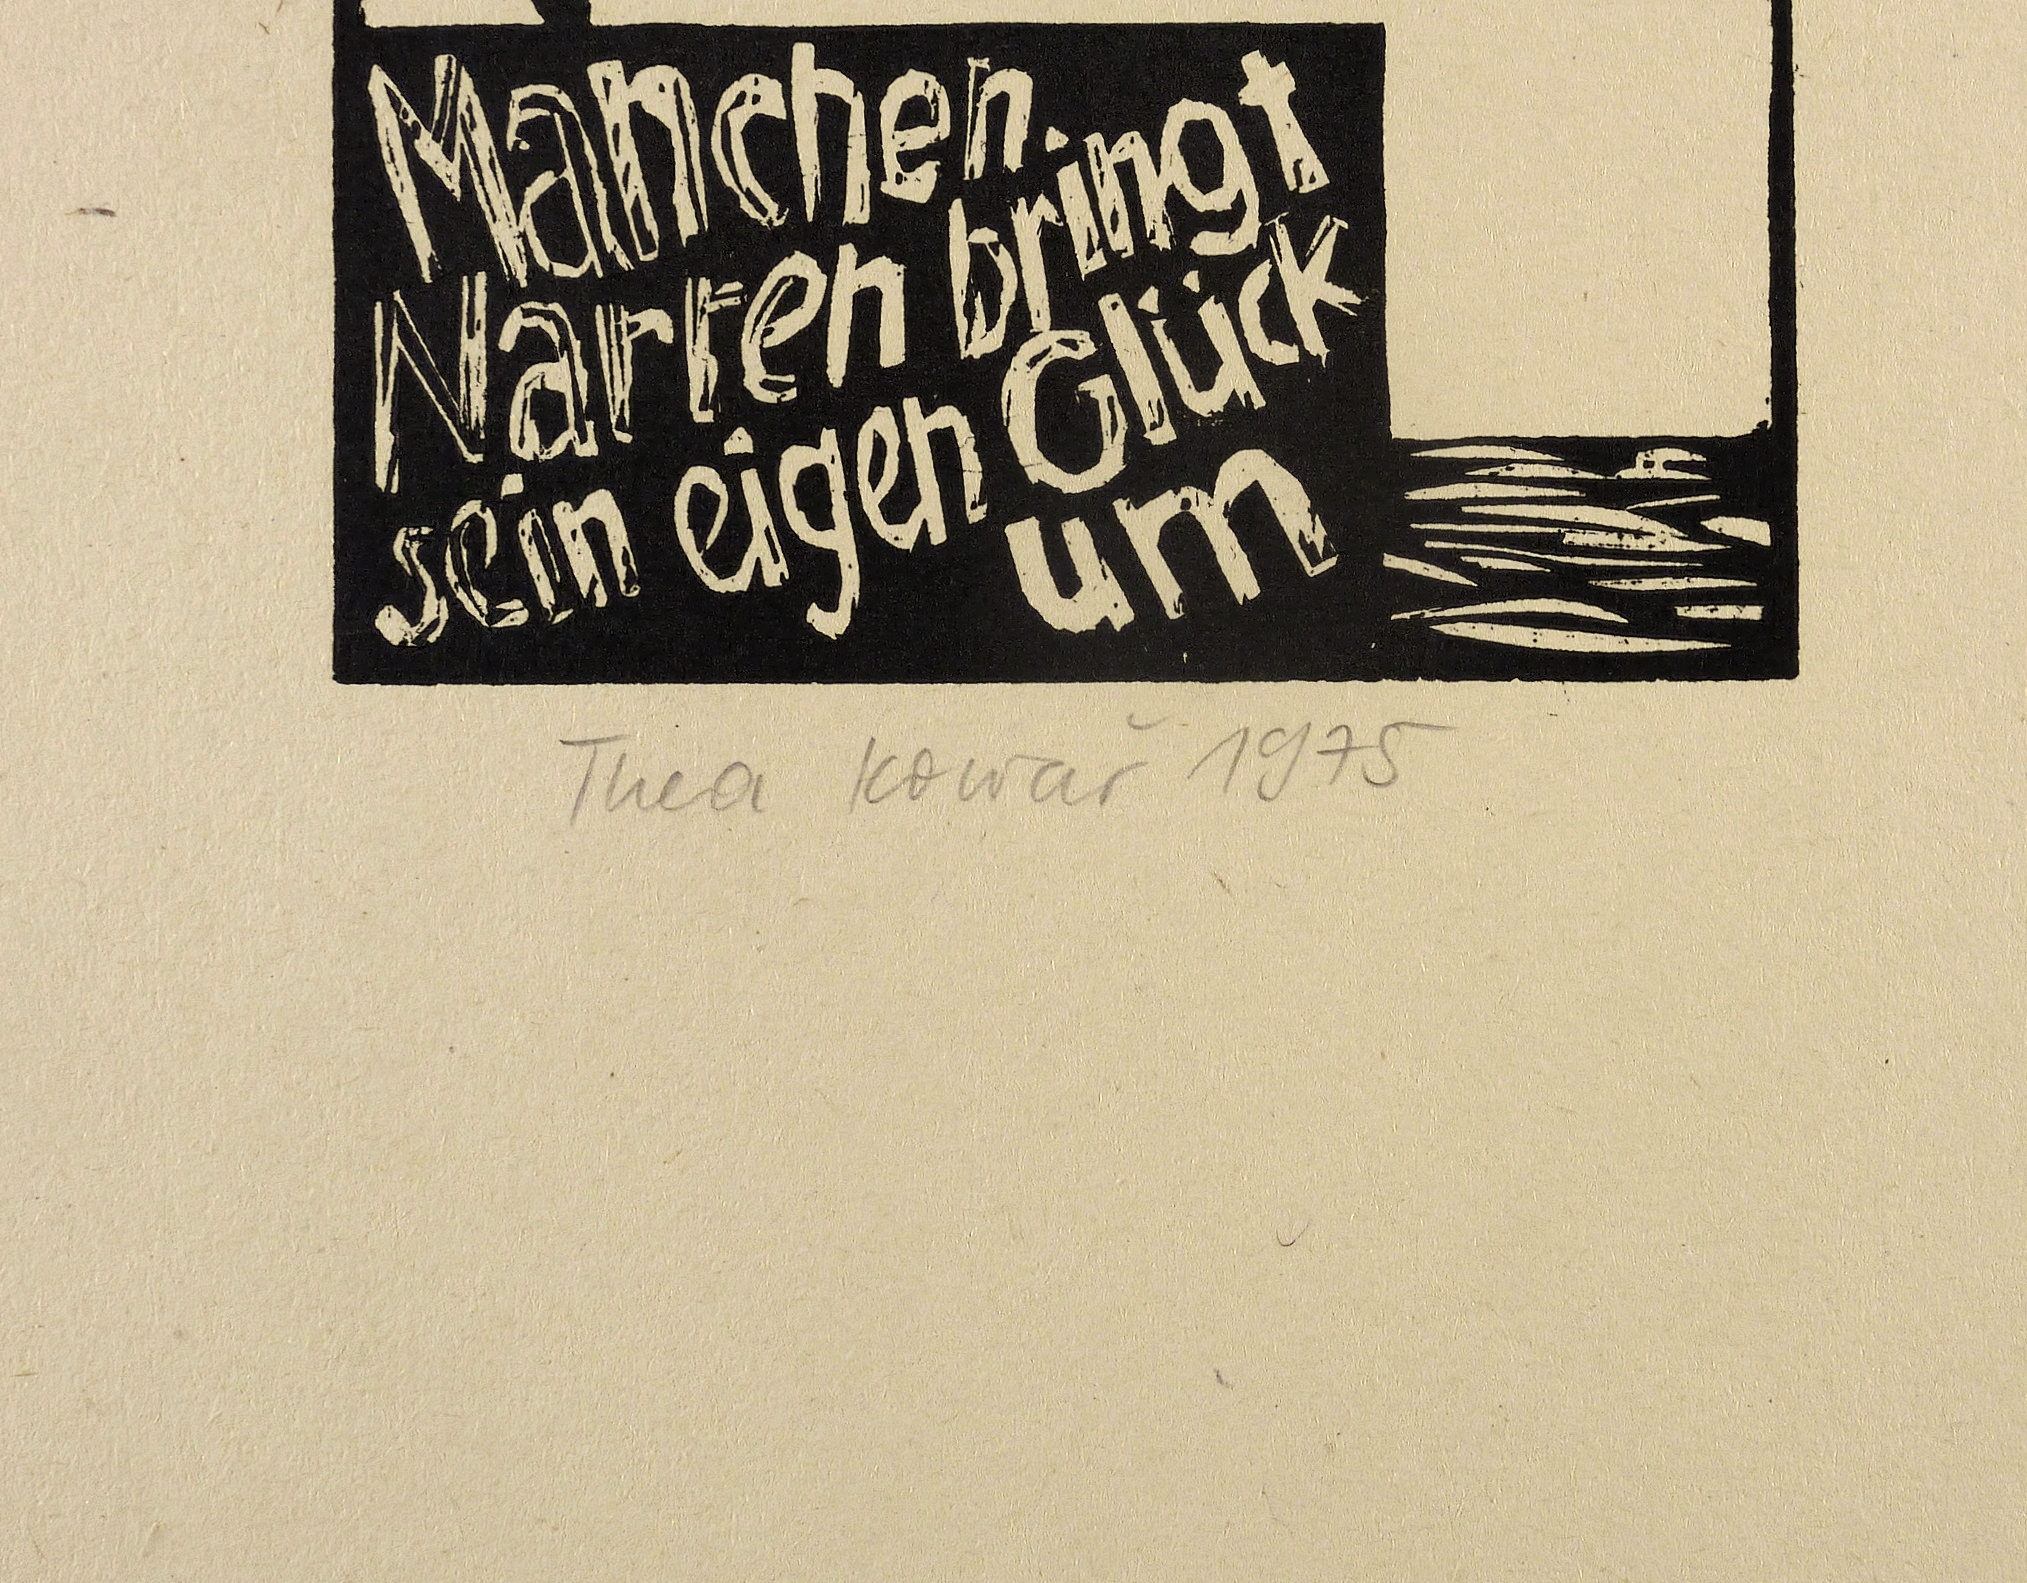 Manchen
Narren bringt
sein eigen Glück
um
Thea Kowař 1975